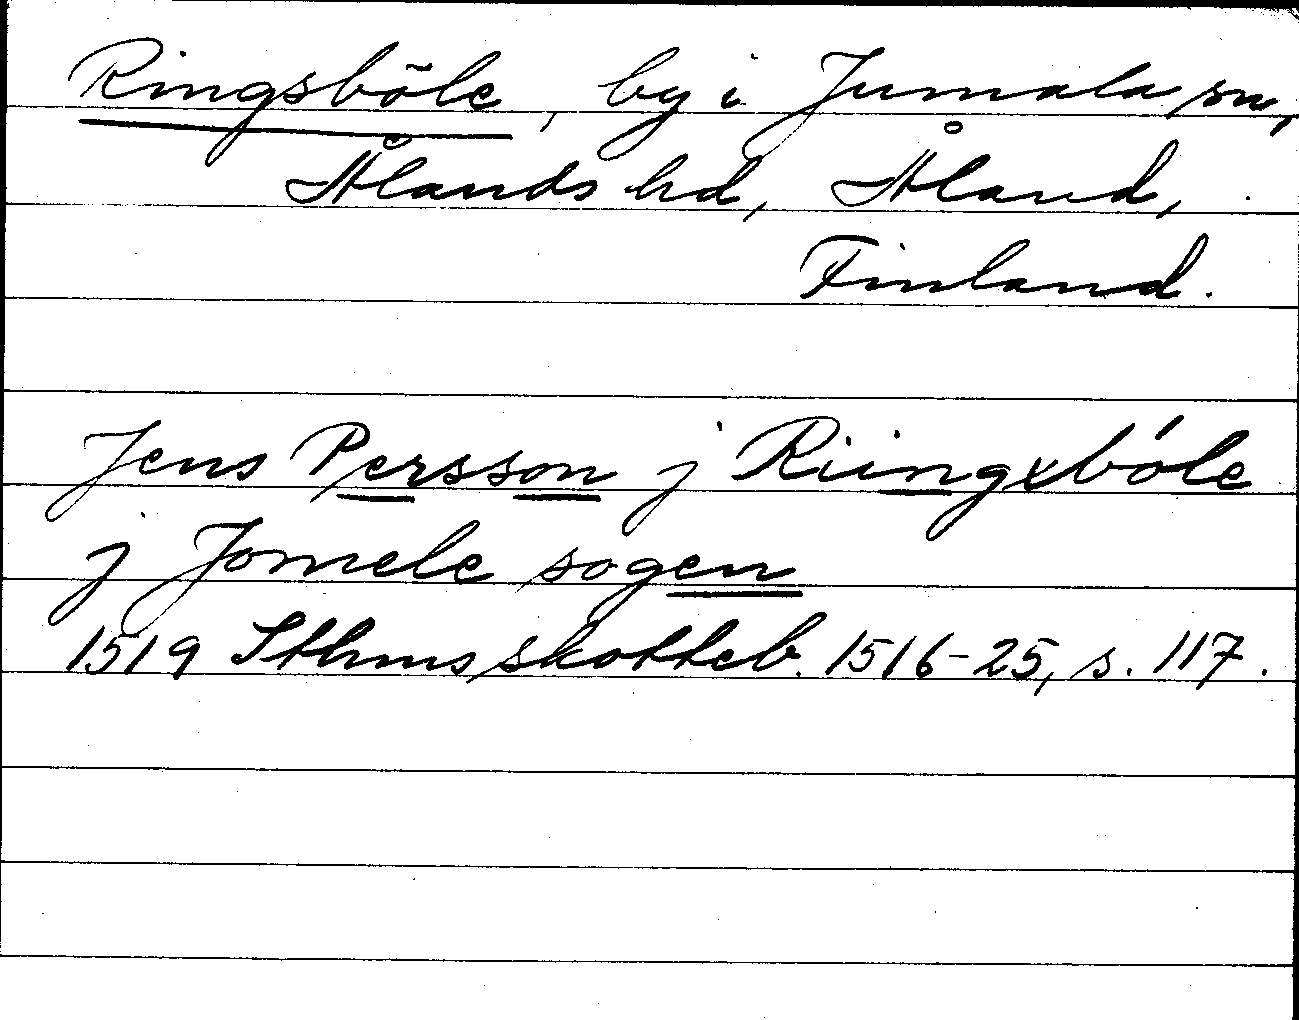 Ringsböle, by i Jumala sn,
Ålands hd, Åland,
Finland.
Jens Persson j Riingxbóle
j Jomele sogen
1519 Sthms skotteb. 1516-25, s. 117.